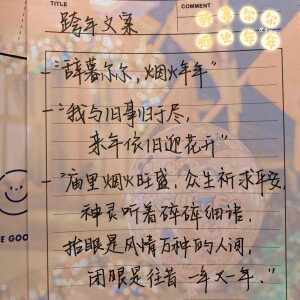 TITLE
COMMENT
跨年文案
辞暮尔尔
烟火年年
一“辞暮尔尔，烟火年年”
一“我与旧事归于尽，
来年依旧迎花开”
一“庙里烟火旺盛，众生祈求平安，
神灵听着碎碎细语，
抬眼是风情万种的人间，
闭眼是往昔一年又一年。”